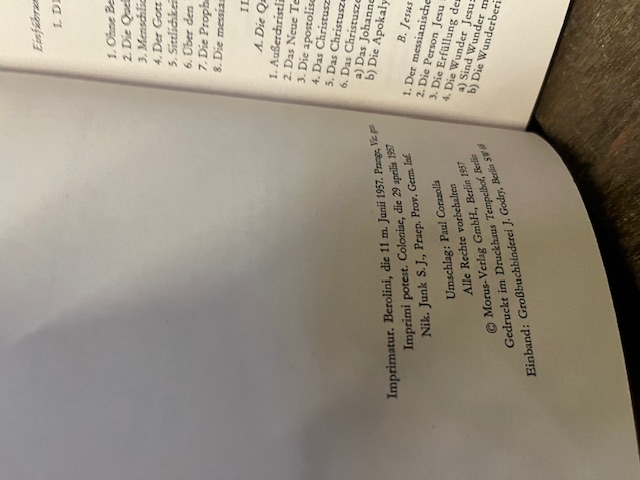 Imprimatur. Berolini, die 11 m. Junii 1957. Prange, Vic. gen
Imprimi potest. Coloniae, die 29 aprilis 1957
Nik. Junk S. J., Praep. Prov. Germ. Inf.
Umschlag: Paul Corazolla
Alle Rechte vorbehalten
© Morus-Verlag GmbH., Berlin 1957
Gedruckt im Druckhaus Tempelhof, Berlin
Einband: Großbuchbinderei J. Godry, Berlin SW
1. D
1. Ohne Be
2. Die Quel
3. Menschlic
4. Der Gott
5. Sittlichkei
6. Über den
7. Die Prophe
8. Die messia
II
A. Die Q
1. Außerchristli
2. Das Neue Te
3. Die apostolisc
4. Das Christusz
5. Das Christusze
6. Das Christusze
a) Das Johanne
b) Die Apokaly
B. Jesus
1. Der messianische
2. Die Person Jesu
3. Die Erfüllung der
4. Die Wunder Jesu:
a) Sind Wunder m
b) Die Wunderberi